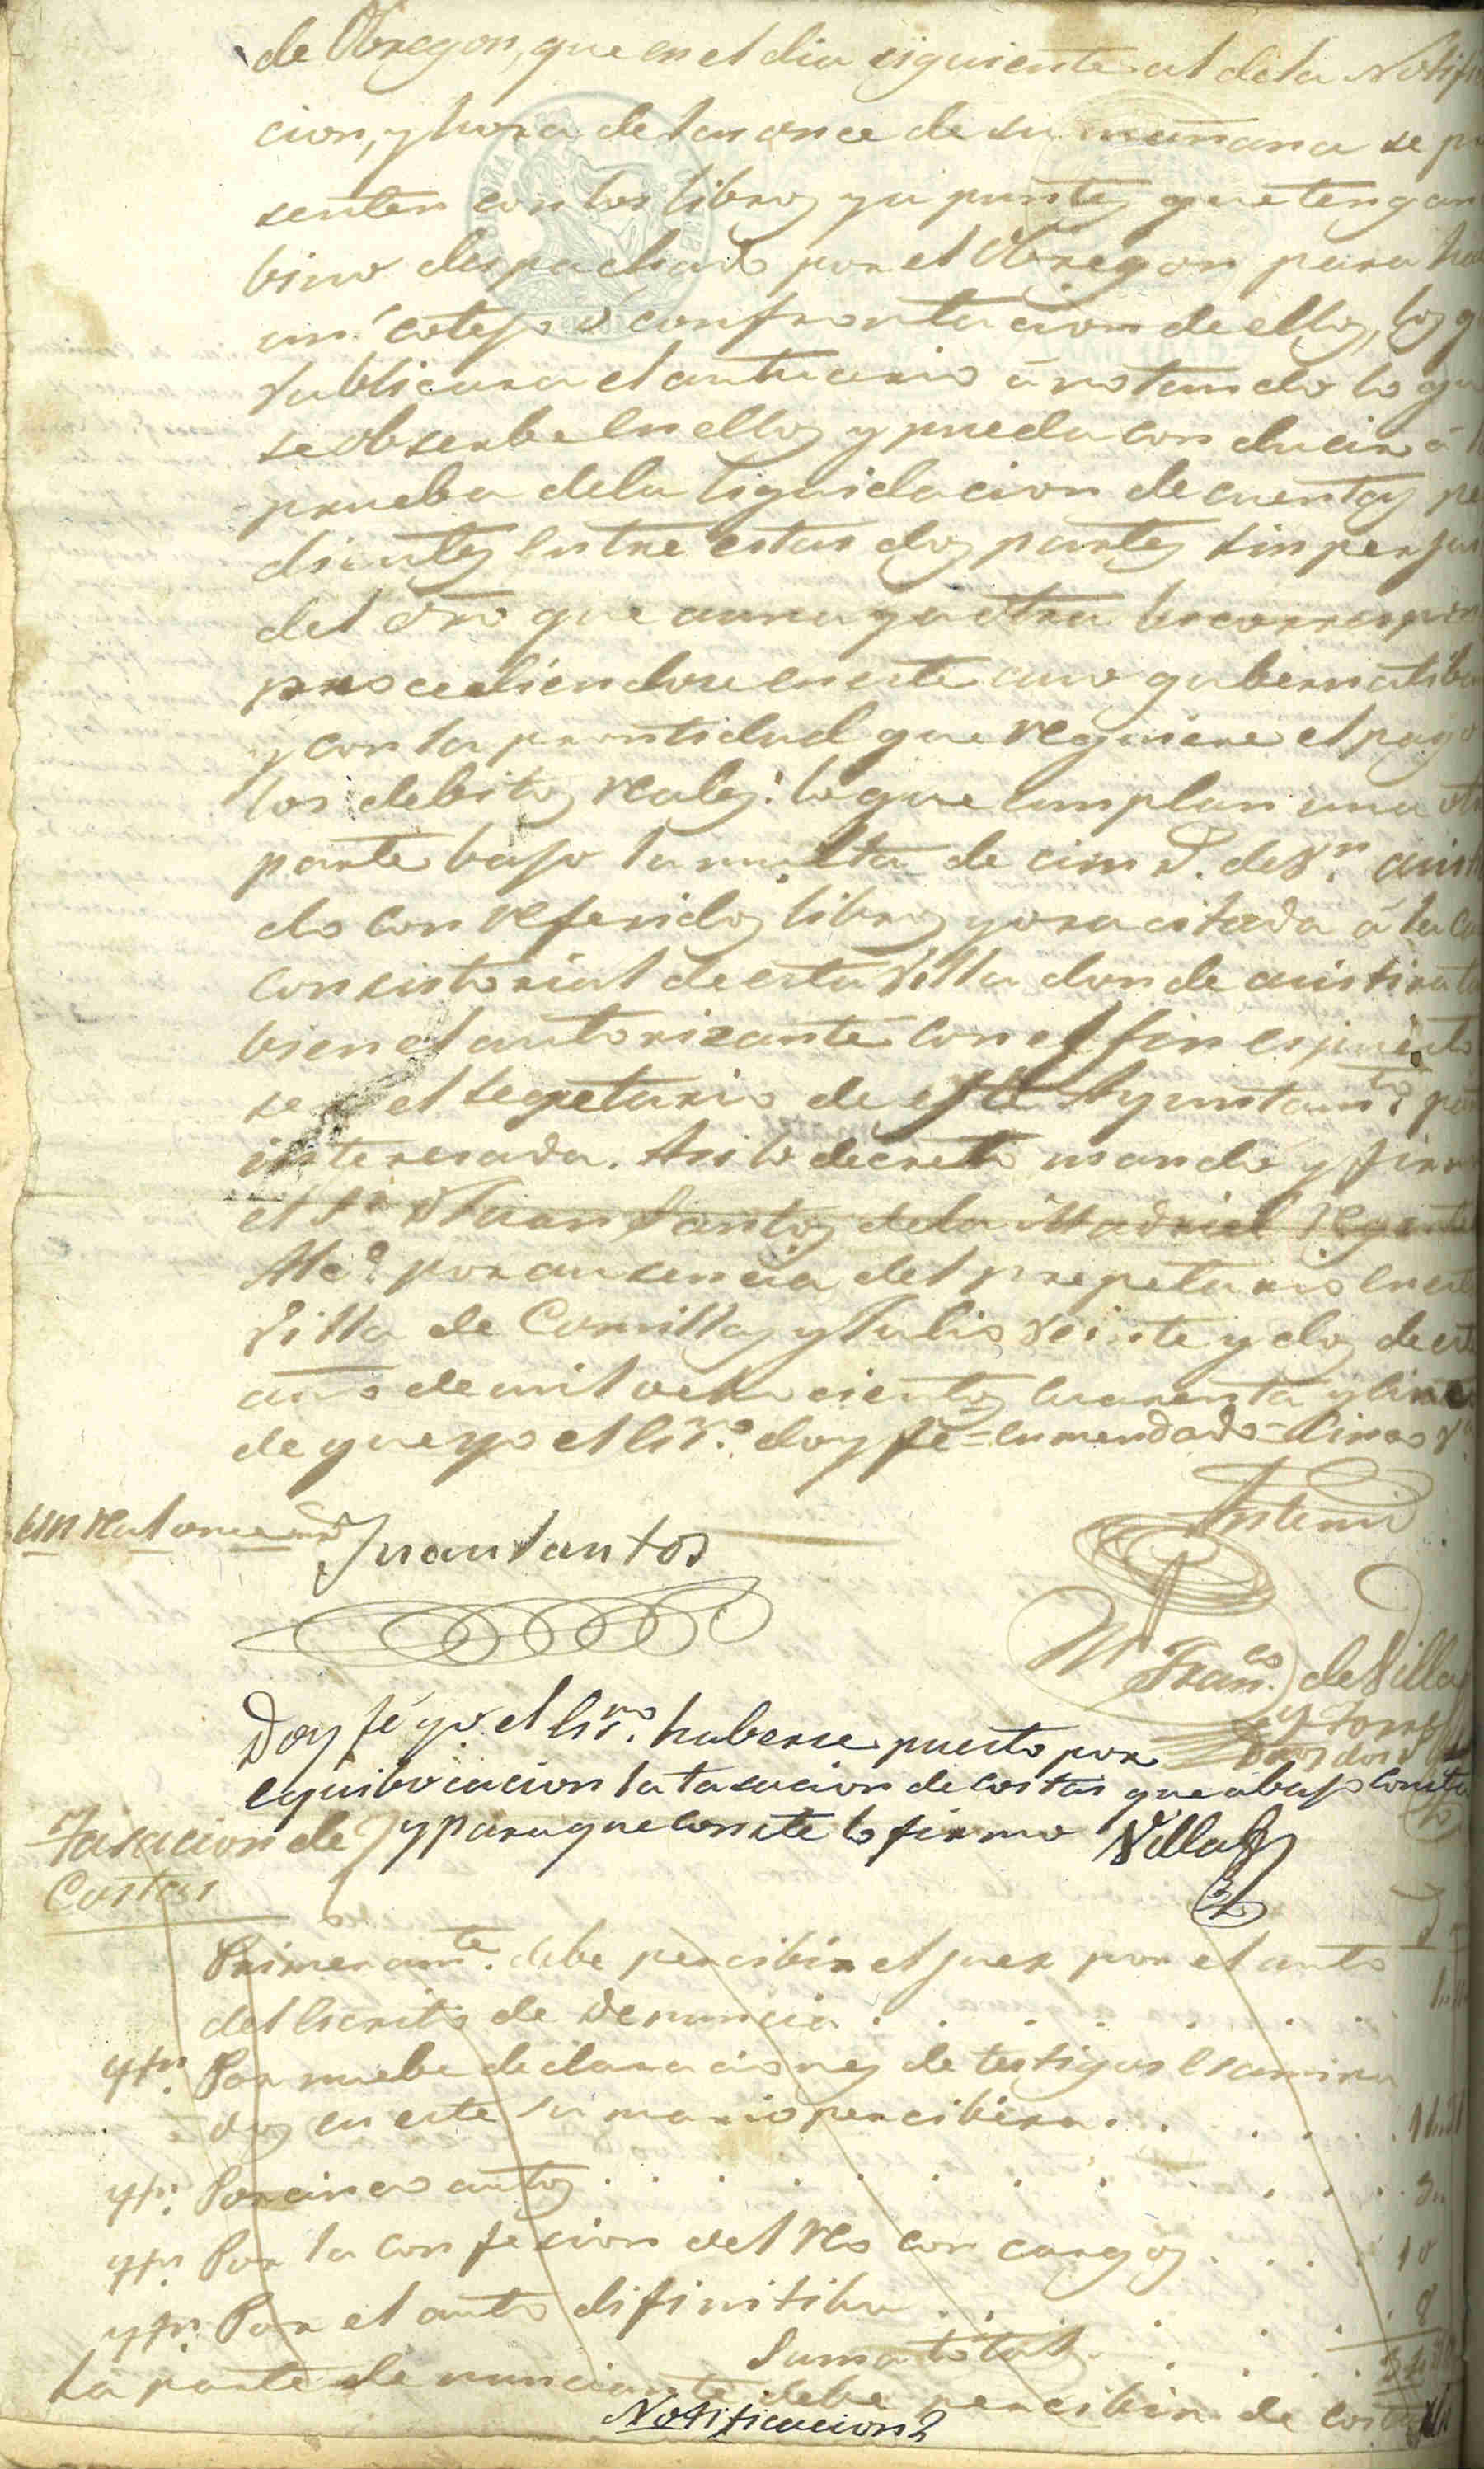 de Obregon, que en el dia siguiente al dela Notifi
cion, y hora de las once de su mañana se pr
senten con los libros y apuntes que tengan
bino despachado por el Obregon para ha
un cotejo ó confrontacion de ellos, los q
rublicara el actuario anotando lo qu
se obserbe en ellos y pueda conducir á l
prueba dela liquidacion de cuentas pe
dientes entre estas dos partes sin perjui
del dro que a una y a otra les corresponda
procediendose en este caso gubernatiba
y con la prontitud que requiere el pago
los debitos reales: lo que cumplan una otra
parte bajo la multa de cinco d. de Vn. asisti
do con referidos libros y ora citada á la ca
consistorial de esta Villa donde asistira ta
bien el autorizante con el fin espuesto
se el segretario de este Ayuntamto. par
interesada. Asi lo decretó mandó y firm
el Sr. D. Juan Santos dela Madrid Regente
Alce. por ausencia del propetario en esta
Villa de Comillas y Julio veinte y dos de este
año de mil ocho cientos cuarenta y cinco
de que yo el Esno. doy fe = enmendado = cinco
Un real once mrs
Juan Santos
Ante mi
M. Franco. de Villa
y Torre
Doy fé yo el Esno. haberse puesto por
equibocacion la tasacion de costas que abajo consta
y para que conste lo firmo Villa
Tasacion de
Costas
Primeramte. debe percibir el juez por el auto
del Escrito de Denuncia
ytn. Por nuebe declaraciones de testigos examina
dos en este sumario percibira
ytn. Por cinco autos
ytn. Por la confesion del reo con cargos 10
ytn. Por el auto difinitibo 8
Suma total
La parte denunciante debe percibir de costas
Notificacion